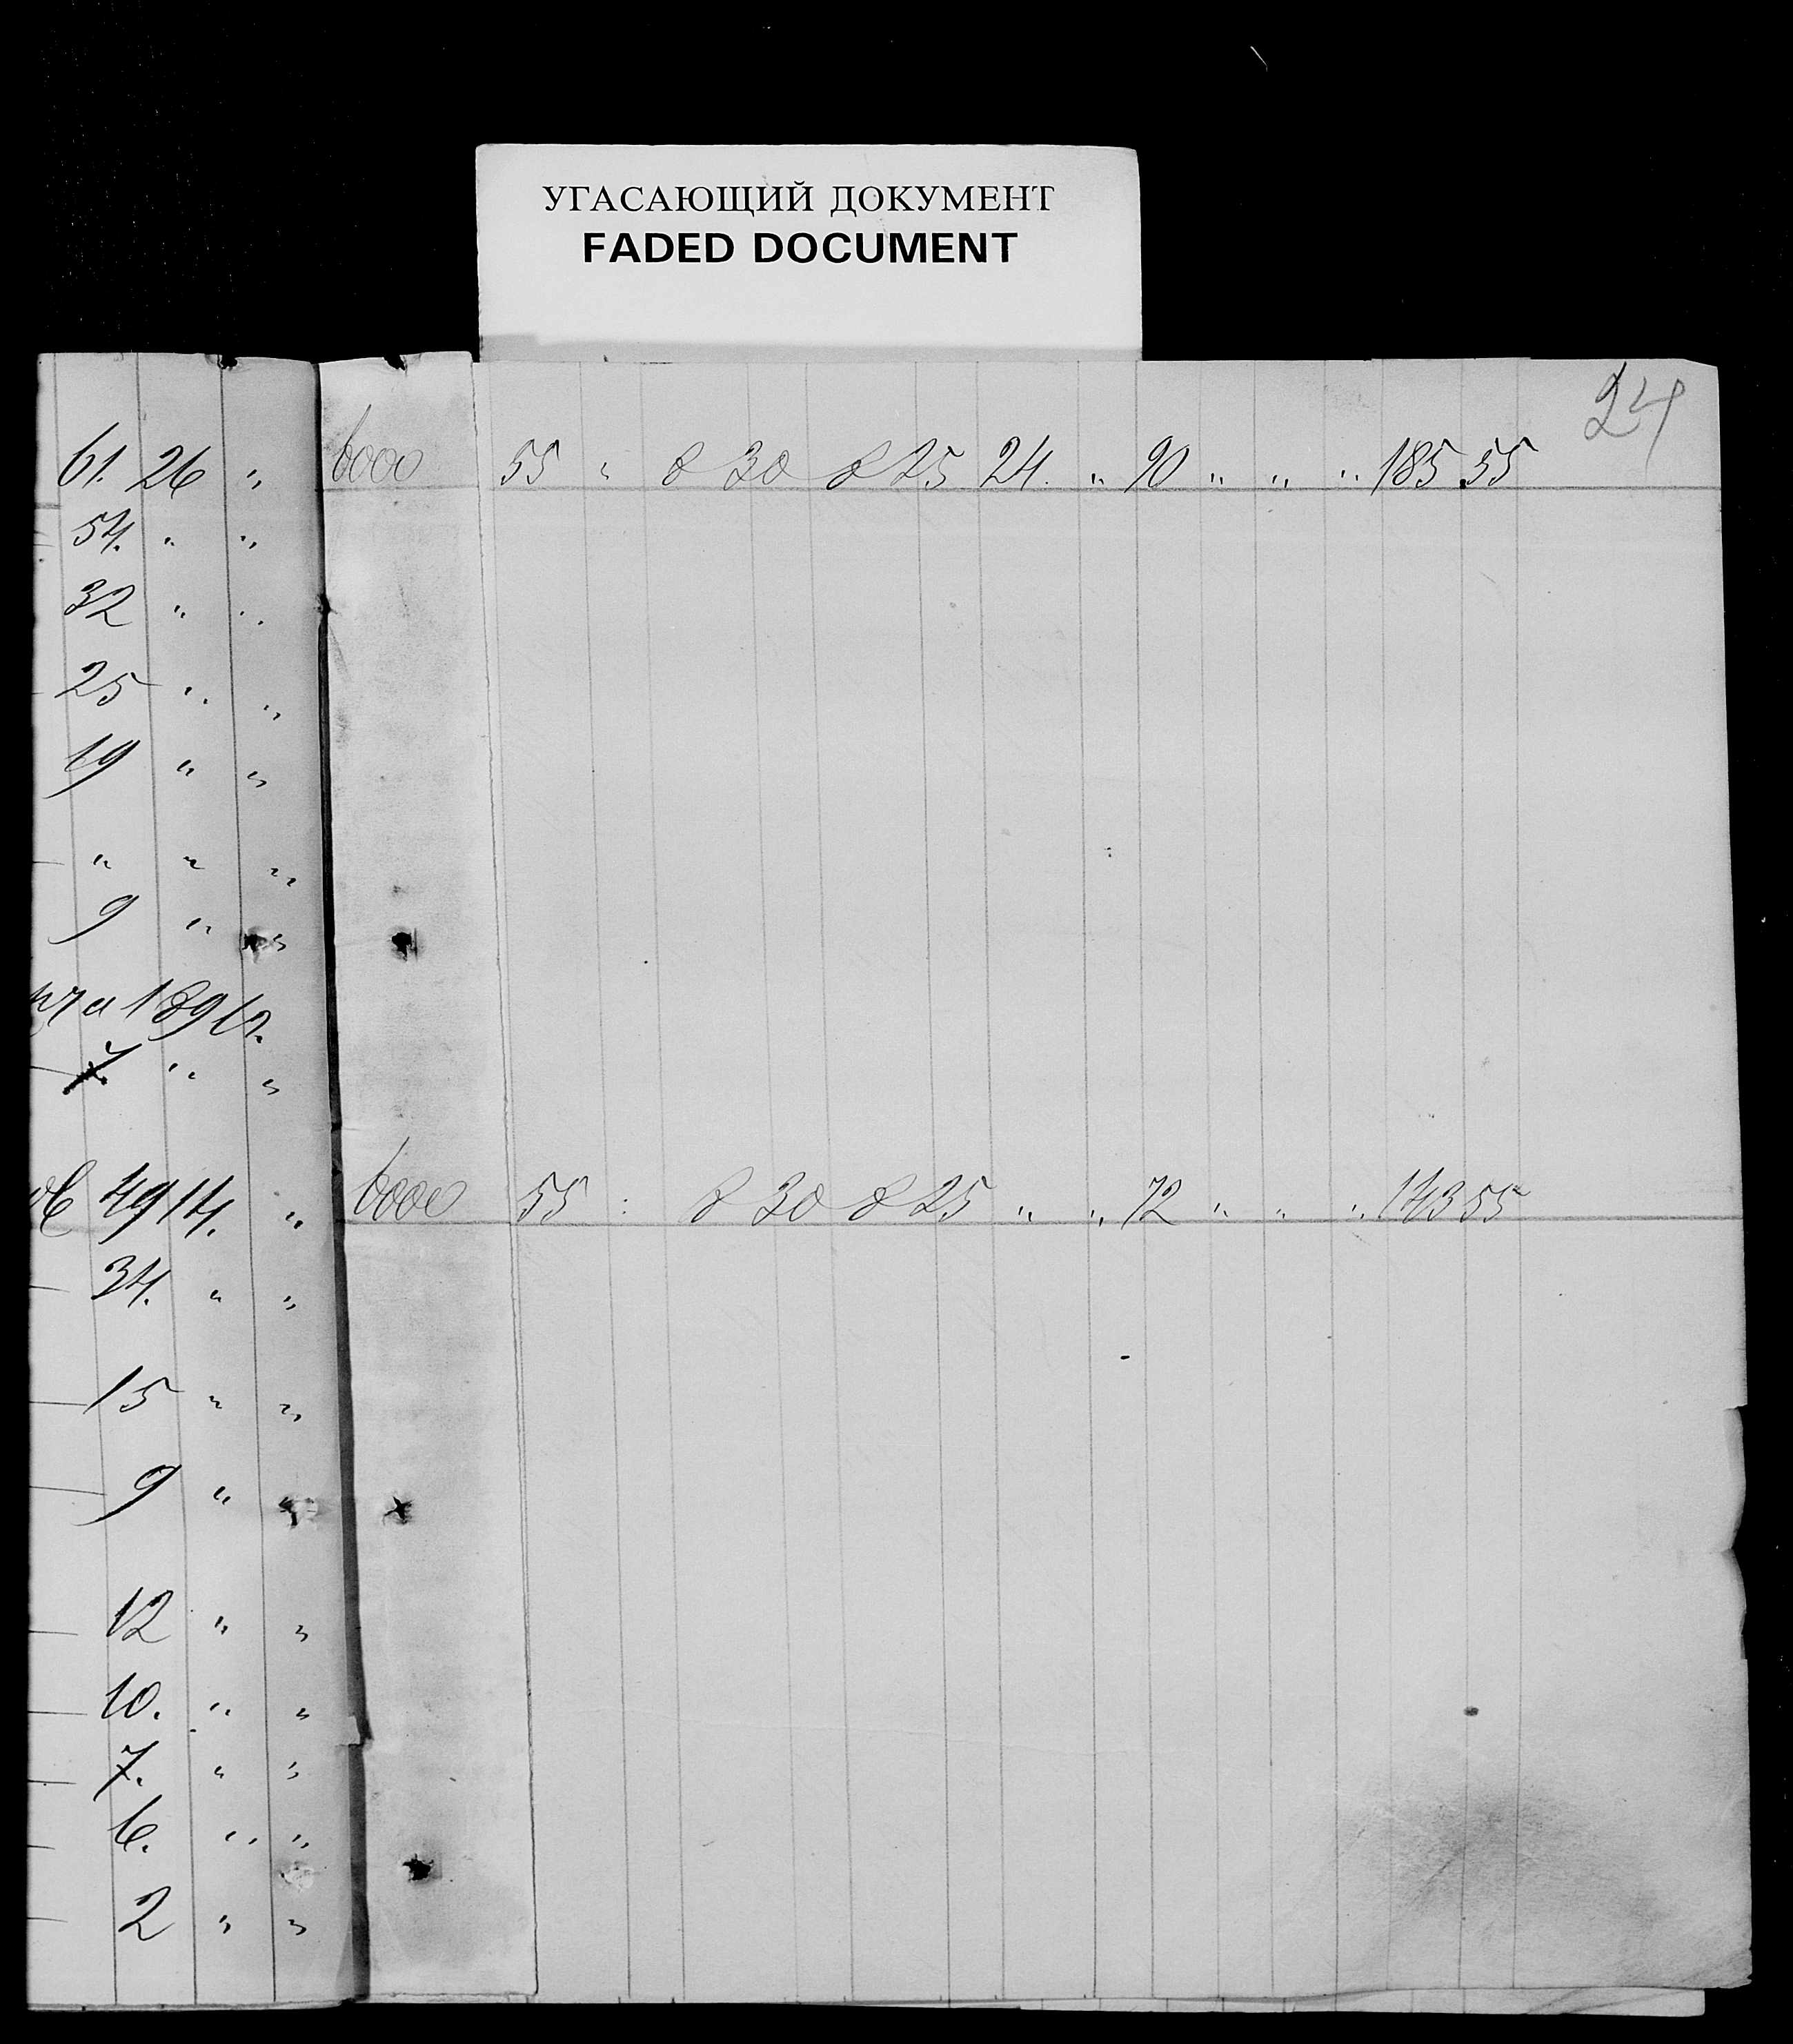 УГАСАЮЩИЙ ДОКУМЕНТ
FADED DOCUMENT
24
61. 26 "
54. " "
32 " "
25 " "
19 " "
" " "
9 " "
" "
49 14. "
34. " "
15 " "
9 " "
12 " "
10. " "
7. " "
6. " "
2 " "
6000 55 " 8 30 8 25 24. " 90 " " " 185 55
6000 55 " 8 30 8 25 " " 72 " " " 143 55